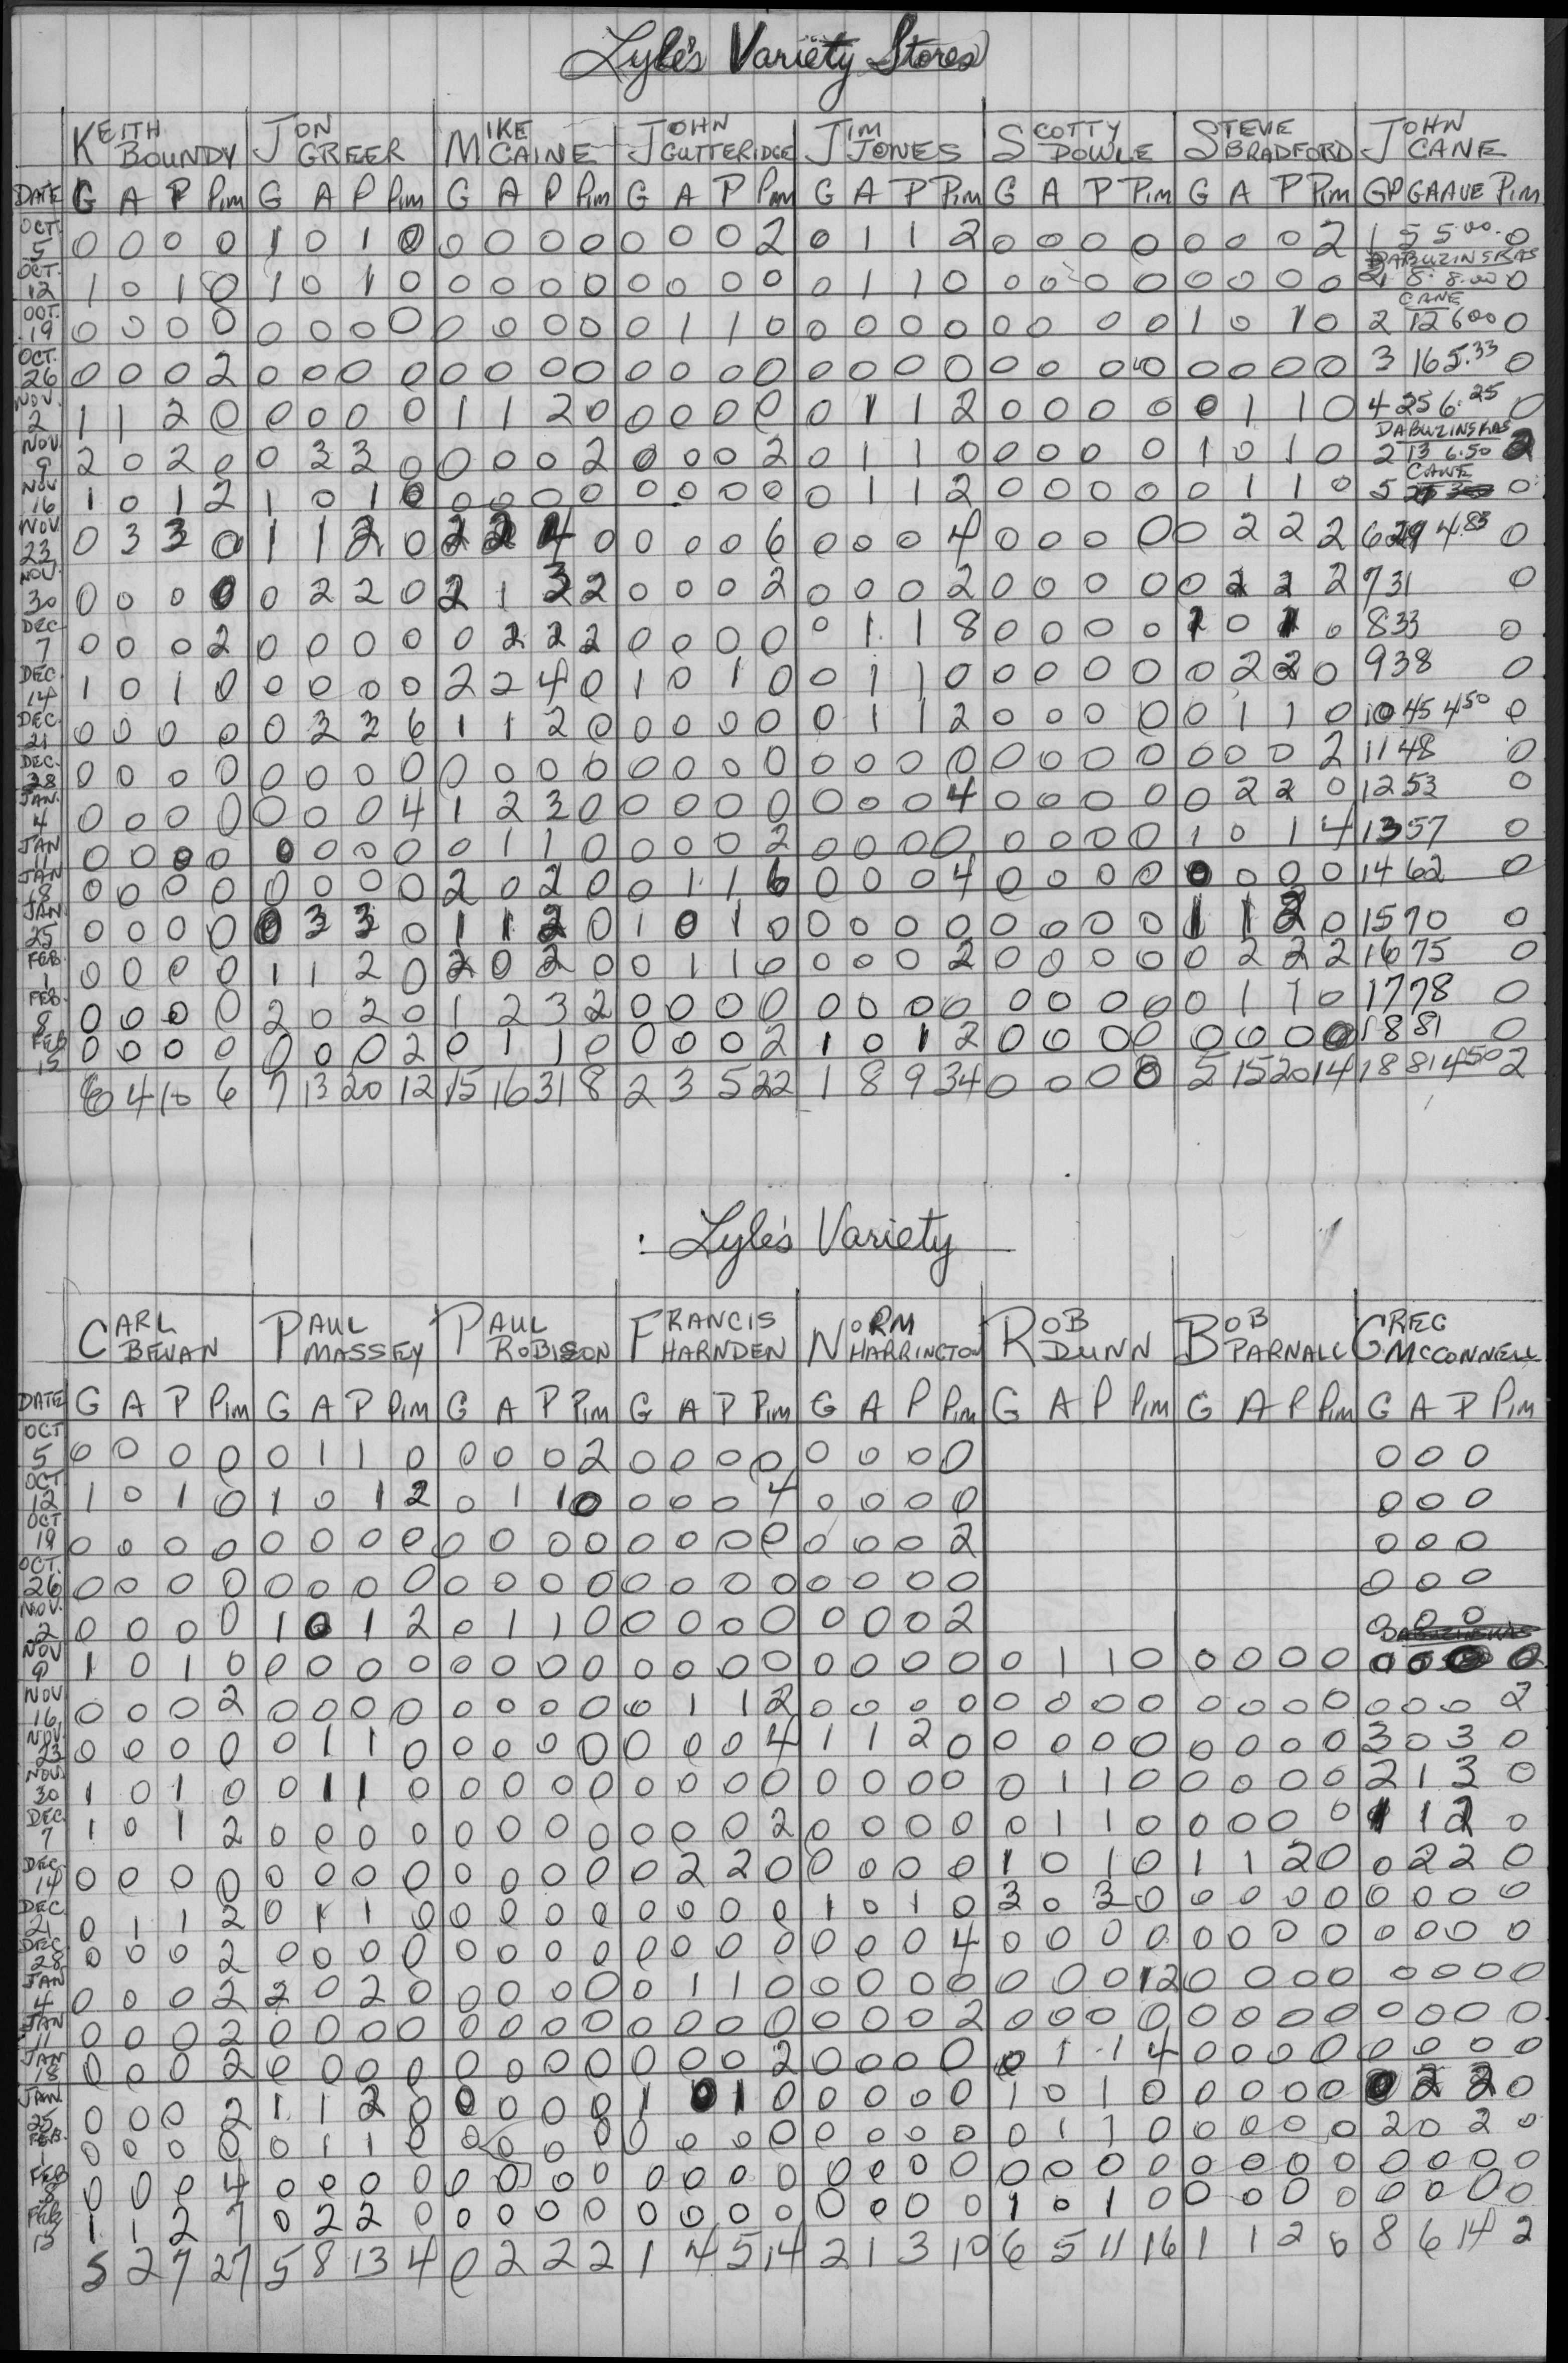 Lyle's Variety Stores
KEITH BOUNDY JON GREER MIKE CAINE JOHN GUTTERIDGE JIM JONES SCOTTY DOWLE STEVE BRADFORD JOHN CANE
DATE G A P Pim G A P Pim G A P Pim G A P Pim G A P Pim G A P Pim G A P Pim GP GA AVE Pim
OCT. 5 0 0 0 0 1 0 1 0 0 0 0 0 0 0 0 2 0 1 1 2 0 0 0 0 0 0 0 2 1 5 5.00 0
DABUZINSKAS
OCT. 12 1 0 1 0 1 0 1 0 0 0 0 0 0 0 0 0 0 1 1 0 0 0 0 0 0 0 0 0 8 8.00 0
CANE
OCT. 19 0 0 0 0 0 0 0 0 0 0 0 0 0 1 1 0 0 0 0 0 0 0 0 0 1 0 1 0 2 12 6.00 0
OCT. 26 0 0 0 2 0 0 0 0 0 0 0 0 0 0 0 0 0 0 0 0 0 0 0 0 0 0 0 0 3 16 5.33 0
NOV. 2 1 1 2 0 0 0 0 0 1 1 2 0 0 0 0 0 0 1 1 2 0 0 0 0 0 1 1 0 4 25 6.25 0
DABUZINSKAS
NOV. 9 2 0 2 0 0 3 3 0 0 0 0 2 0 0 0 2 0 1 1 0 0 0 0 0 1 0 1 0 2 13 6.50 2
CANE
NOV 16 1 0 1 2 1 0 1 0 0 0 0 0 0 0 0 0 0 1 1 2 0 0 0 0 0 1 1 0 5 0
NOV. 23 0 3 3 0 1 1 2 0 2 2 4 0 0 0 0 6 0 0 0 4 0 0 0 0 0 2 2 2 6 29 4.83 0
NOV. 30 0 0 0 0 0 2 2 0 2 1 3 2 0 0 0 2 0 0 0 2 0 0 0 0 0 2 2 2 7 31 0
DEC 7 0 0 0 2 0 0 0 0 0 2 2 2 0 0 0 0 0 1 1 8 0 0 0 0 1 0 1 0 8 33 0
DEC. 14 1 0 1 0 0 0 0 0 2 2 4 0 1 0 1 0 0 1 1 0 0 0 0 0 0 2 2 0 9 38 0
DEC. 21 0 0 0 0 0 3 3 6 1 1 2 0 0 0 0 0 0 1 1 2 0 0 0 0 0 1 1 0 10 45 4.50 0
DEC. 28 0 0 0 0 0 0 0 0 0 0 0 0 0 0 0 0 0 0 0 0 0 0 0 0 0 0 0 2 11 48 0
JAN. 4 0 0 0 0 0 0 0 4 1 2 3 0 0 0 0 0 0 0 0 4 0 0 0 0 0 2 2 0 12 53 0
JAN 11 0 0 0 0 0 0 0 0 0 1 1 0 0 0 0 2 0 0 0 0 0 0 0 0 1 0 1 4 13 57 0
JAN 18 0 0 0 0 0 0 0 0 2 0 2 0 0 1 1 6 0 0 0 4 0 0 0 0 0 0 0 0 14 62 0
JAN 25 0 0 0 0 0 3 3 0 1 1 2 0 1 0 1 0 0 0 0 0 0 0 0 0 1 1 2 0 15 70 0
FEB. 1 0 0 0 0 1 1 2 0 2 0 2 0 0 1 1 0 0 0 0 2 0 0 0 0 0 2 2 2 16 75 0
FEB. 8 0 0 0 0 2 0 2 0 1 2 3 2 0 0 0 0 0 0 0 0 0 0 0 0 0 1 1 0 17 78 0
FEB 15 0 0 0 0 0 0 0 2 0 1 1 0 0 0 0 2 1 0 1 2 0 0 0 0 0 0 0 0 18 81 0
6 4 10 6 7 13 20 12 15 16 31 8 2 3 5 22 1 8 9 34 0 0 0 0 5 15 20 14 18 81 4.50 2
Lyle's Variety
CARL BEVAN PAUL MASSEY PAUL ROBISON FRANCIS HARNDEN NORM HARRINGTON ROB DUNN BOB PARNALL GREG MCCONNELL
DATE G A P Pim G A P Pim G A P Pim G A P Pim G A P Pim G A P Pim G A P Pim G A P Pim
OCT 5 0 0 0 0 0 1 1 0 0 0 0 2 0 0 0 0 0 0 0 0 0 0 0
OCT 12 1 0 1 0 1 0 1 2 0 1 1 0 0 0 0 4 0 0 0 0 0 0 0
OCT 19 0 0 0 0 0 0 0 0 0 0 0 0 0 0 0 0 0 0 0 2 0 0 0
OCT. 26 0 0 0 0 0 0 0 0 0 0 0 0 0 0 0 0 0 0 0 0 0 0 0
NOV. 2 0 0 0 0 1 0 1 2 0 1 1 0 0 0 0 0 0 0 0 2 0 0 0
DABUZINSKAS
NOV 9 1 0 1 0 0 0 0 0 0 0 0 0 0 0 0 0 0 0 0 0 0 1 1 0 0 0 0 0 0 0 0 0
NOV 16 0 0 0 2 0 0 0 0 0 0 0 0 0 1 1 2 0 0 0 0 0 0 0 0 0 0 0 0 0 0 0 2
NOV. 23 0 0 0 0 0 1 1 0 0 0 0 0 0 0 0 4 1 1 2 0 0 0 0 0 0 0 0 0 3 0 3 0
NOV. 30 1 0 1 0 0 1 1 0 0 0 0 0 0 0 0 0 0 0 0 0 0 1 1 0 0 0 0 0 2 1 3 0
DEC 7 1 0 1 2 0 0 0 0 0 0 0 0 0 0 0 2 0 0 0 0 0 1 1 0 0 0 0 0 1 1 2 0
DEC. 14 0 0 0 0 0 0 0 0 0 0 0 0 0 2 2 0 0 0 0 0 1 0 1 0 1 1 2 0 0 2 2 0
DEC 21 0 1 1 2 0 1 1 0 0 0 0 0 0 0 0 0 1 0 1 0 3 0 3 0 0 0 0 0 0 0 0 0
DEC 28 0 0 0 2 0 0 0 0 0 0 0 0 0 0 0 0 0 0 0 4 0 0 0 0 0 0 0 0 0 0 0 0
JAN 4 0 0 0 2 2 0 2 0 0 0 0 0 0 1 1 0 0 0 0 0 0 0 0 12 0 0 0 0 0 0 0 0
JAN 11 0 0 0 2 0 0 0 0 0 0 0 0 0 0 0 0 0 0 0 2 0 0 0 0 0 0 0 0 0 0 0 0
JAN 18 0 0 0 2 0 0 0 0 0 0 0 0 0 0 0 2 0 0 0 0 0 1 1 4 0 0 0 0 0 0 0 0
JAN. 25 0 0 0 2 1 1 2 0 0 0 0 0 1 0 1 0 0 0 0 0 1 0 1 0 0 0 0 0 0 2 2 0
FEB. 1 0 0 0 0 0 1 1 0 0 0 0 0 0 0 0 0 0 0 0 0 0 1 1 0 0 0 0 0 2 0 2 0
FEB 8 0 0 0 4 0 0 0 0 0 0 0 0 0 0 0 0 0 0 0 0 0 0 0 0 0 0 0 0 0 0 0 0
FEB 15 1 1 2 7 0 2 2 0 0 0 0 0 0 0 0 0 0 0 0 0 1 0 1 0 0 0 0 0 0 0 0 0
5 2 7 27 5 8 13 4 0 2 2 2 1 4 5 14 2 1 3 10 6 5 11 16 1 1 2 0 8 6 14 2